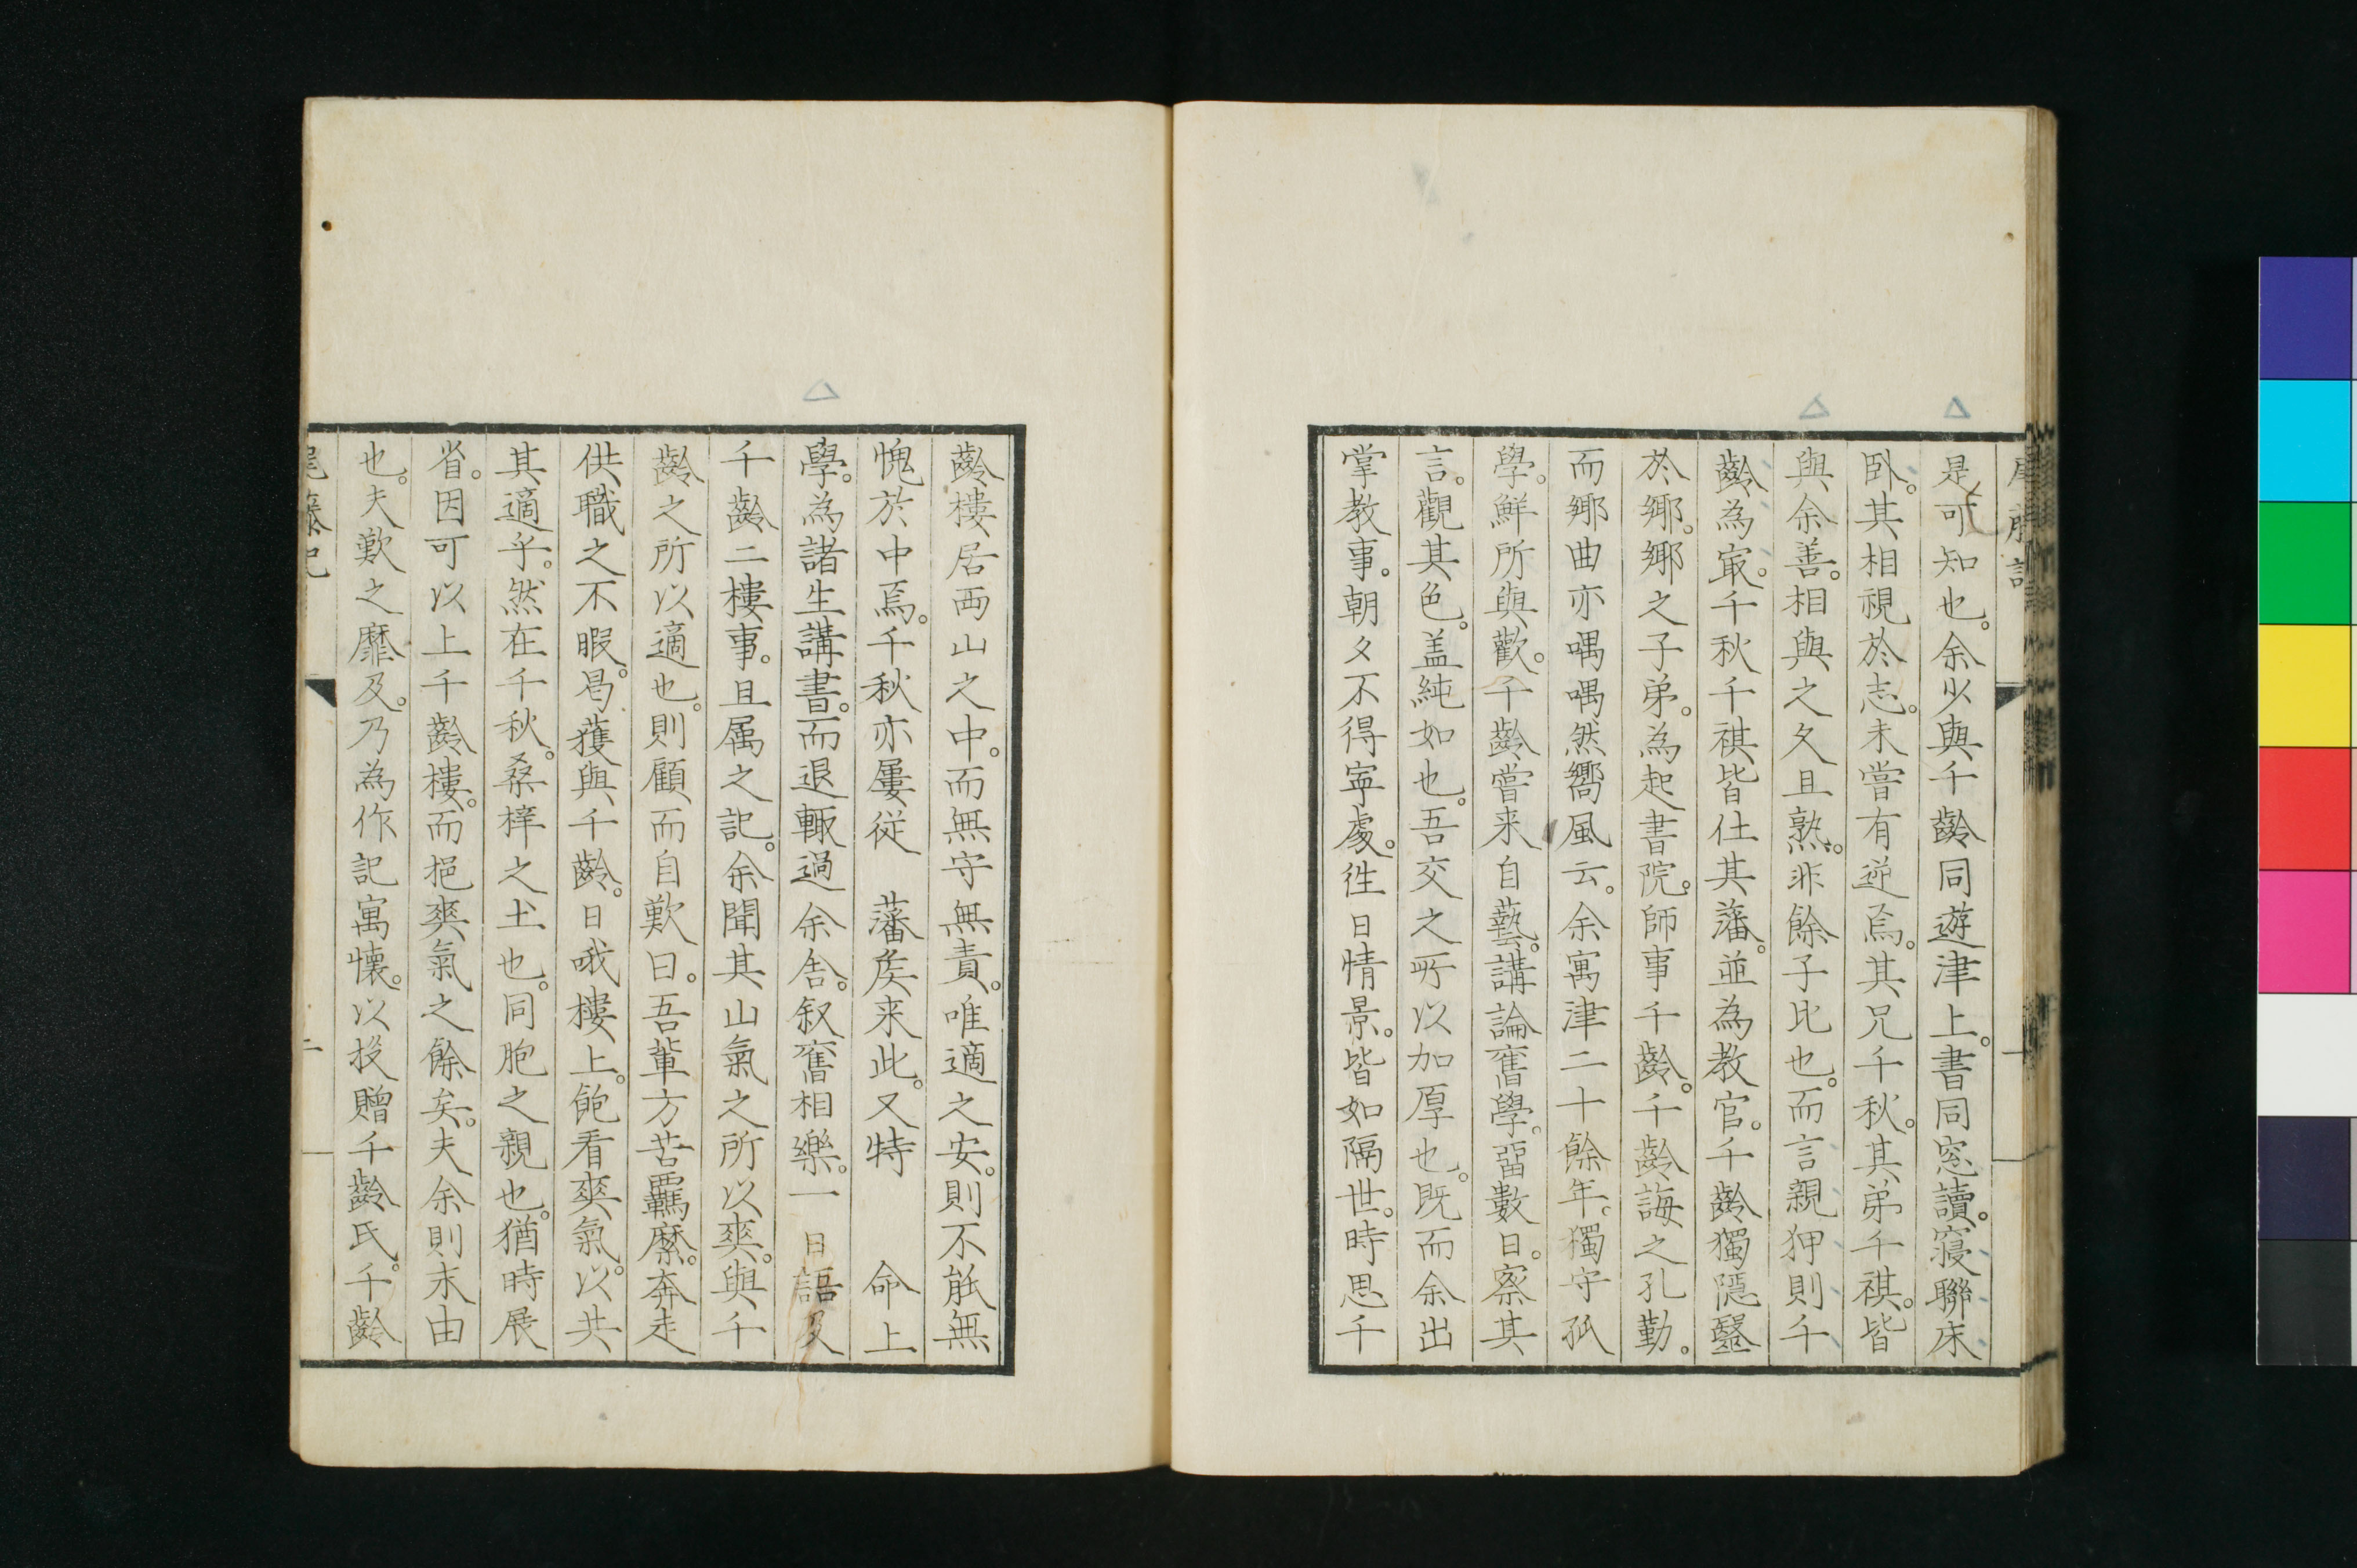 是可知也。余少與千齡同遊津上。書同窓讀。寢聯床
臥。其相視於志。未嘗有逆焉。其兄千秋。其弟千祺。皆
與余善。相與之久且熟。非餘子比也。而言親狎則千
齡為㝡。千秋千祺皆仕其藩。並為教官。千齡獨隱毉
於鄉。鄉之子弟。為起書院。師事千齡。千齡誨之孔勤。
而鄉曲亦喁喁然嚮風云。余寓津二十餘年。獨守孤
學。鮮所與歡。千齡嘗来自藝。講論舊學。畱數日。察其
言。觀其色。盖純如也。吾交之所以加厚也。既而余出
掌教事。朝夕不得寧處。徃日情景。皆如隔世。時思千
齡樓居西山之中。而無守無責。唯適之安。則不能無
愧於中焉。千秋亦屢從 藩矦来此。又特 命上
學。為諸生講書。而退輙過余舍。叙舊相樂。一日語及
千齡二樓事。且属之記。余聞其山氣之所以爽。與千
齡之所以適也。則顧而自歎曰。吾輩方苦羈縻。奔走
供職之不暇。曷獲與千齡。日哦樓上。飽看爽氣。以共
其適乎。然在千秋。桑梓之土也。同胞之親也。猶時展
省。因可以上千齡樓。而挹爽氣之餘矣。夫余則末由
也。夫歎之靡及。乃為作記寓懷。以投贈千齡氏。千齡
二